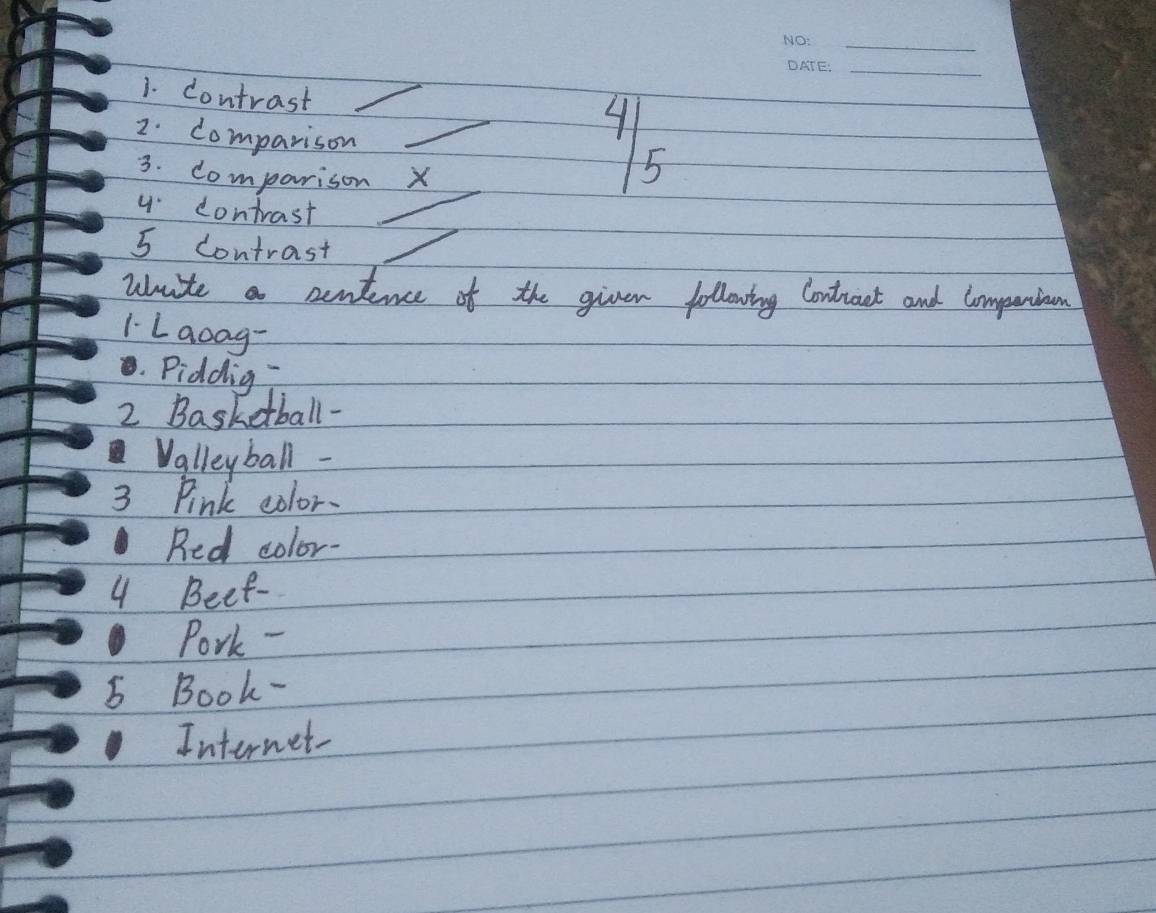 NO:
DATE:
1. Contrast /
2. Comparison /
3. Comparison X
4. Contrast /
5 Contrast /
4/5
Write a sentence of the given following Contrast and Comparison
1. Laoag-
. Piddig-
2 Basketball-
Valleyball -
3 Pink color-
Red color-
4 Beef-
Pork -
5 Book-
Internet-